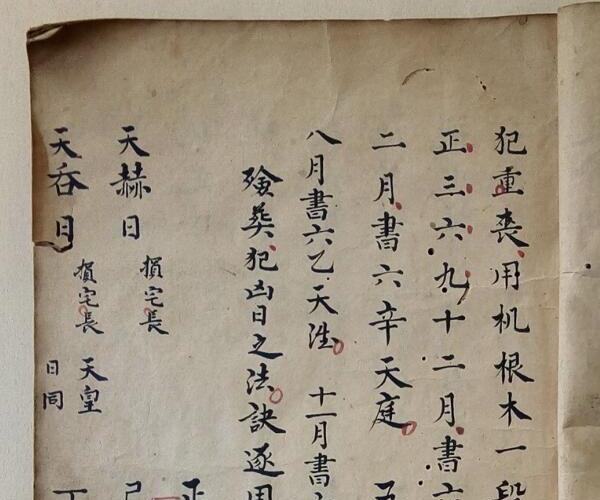 犯重喪用机根木一段
正三六九十二月書六
二月書六辛天庭
八月書六乙天浩 十一月書
殮葬犯凶日之法訣逐用
天赫日 損宅長
天吞日 損宅長 天皇日同